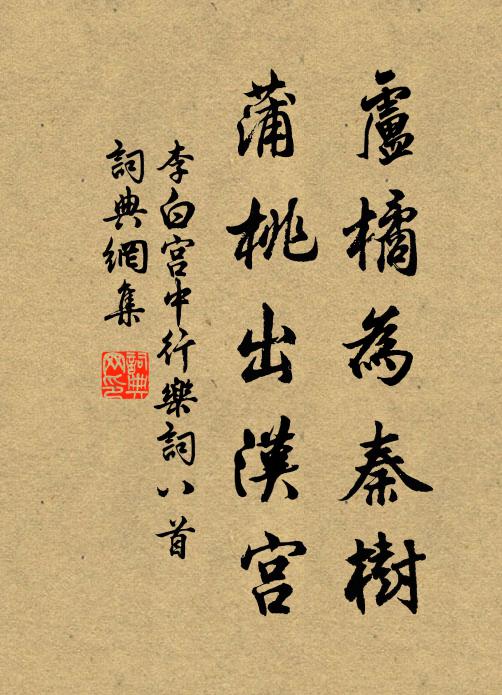 盧橘為秦樹
蒲桃出漢宮
李白宮中行樂詞八首
詞典網集
詞典網印